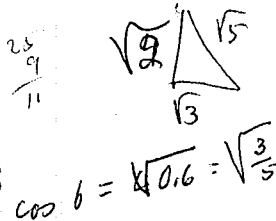 9
11
√2
√5
√3
cos 6 = √0.6 = √3/5